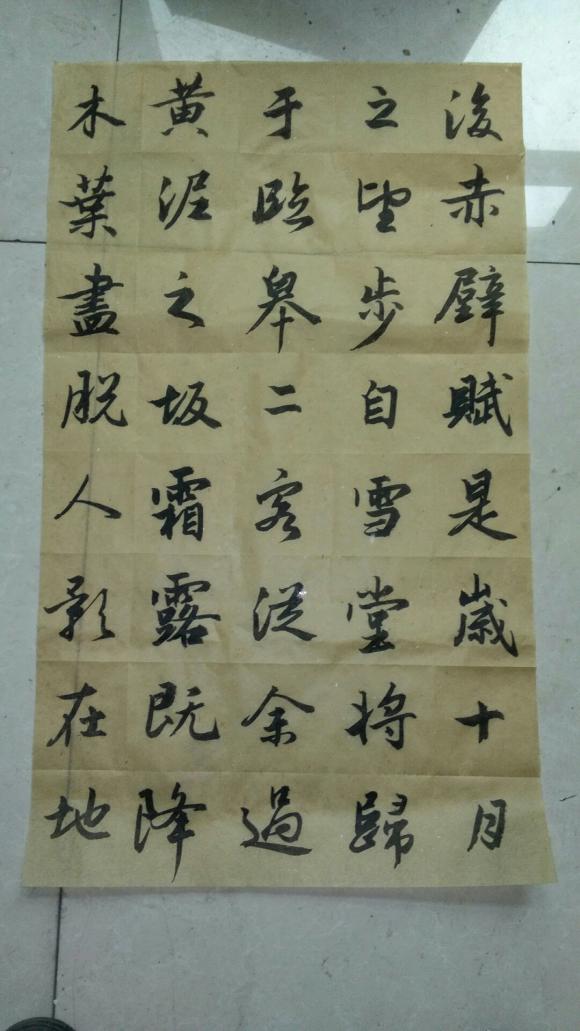 後赤壁賦是歲十月
之望步自雪堂將歸
于臨皋二客從余過
黃泥之坂霜露既降
木葉盡脫人影在地